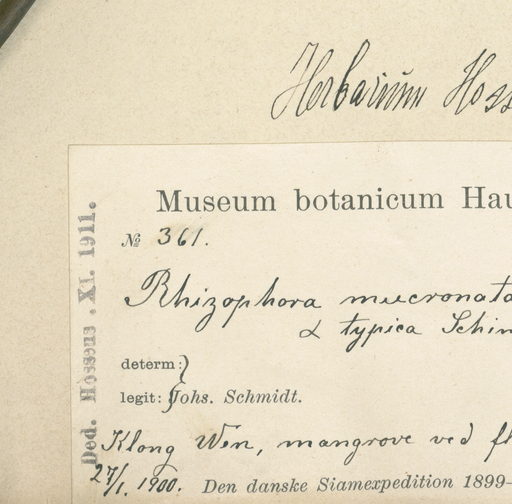 Herbarium Hoss
Museum botanicum Hau
№ 361.
Rhizophora mucronata
α typica Schim
determ:}
legit: Johs. Schmidt.
Klong Wen, mangrove ved fl
27/1. 1900. Den danske Siamexpedition 1899–
Ded. Hosseus . XI. 1911.